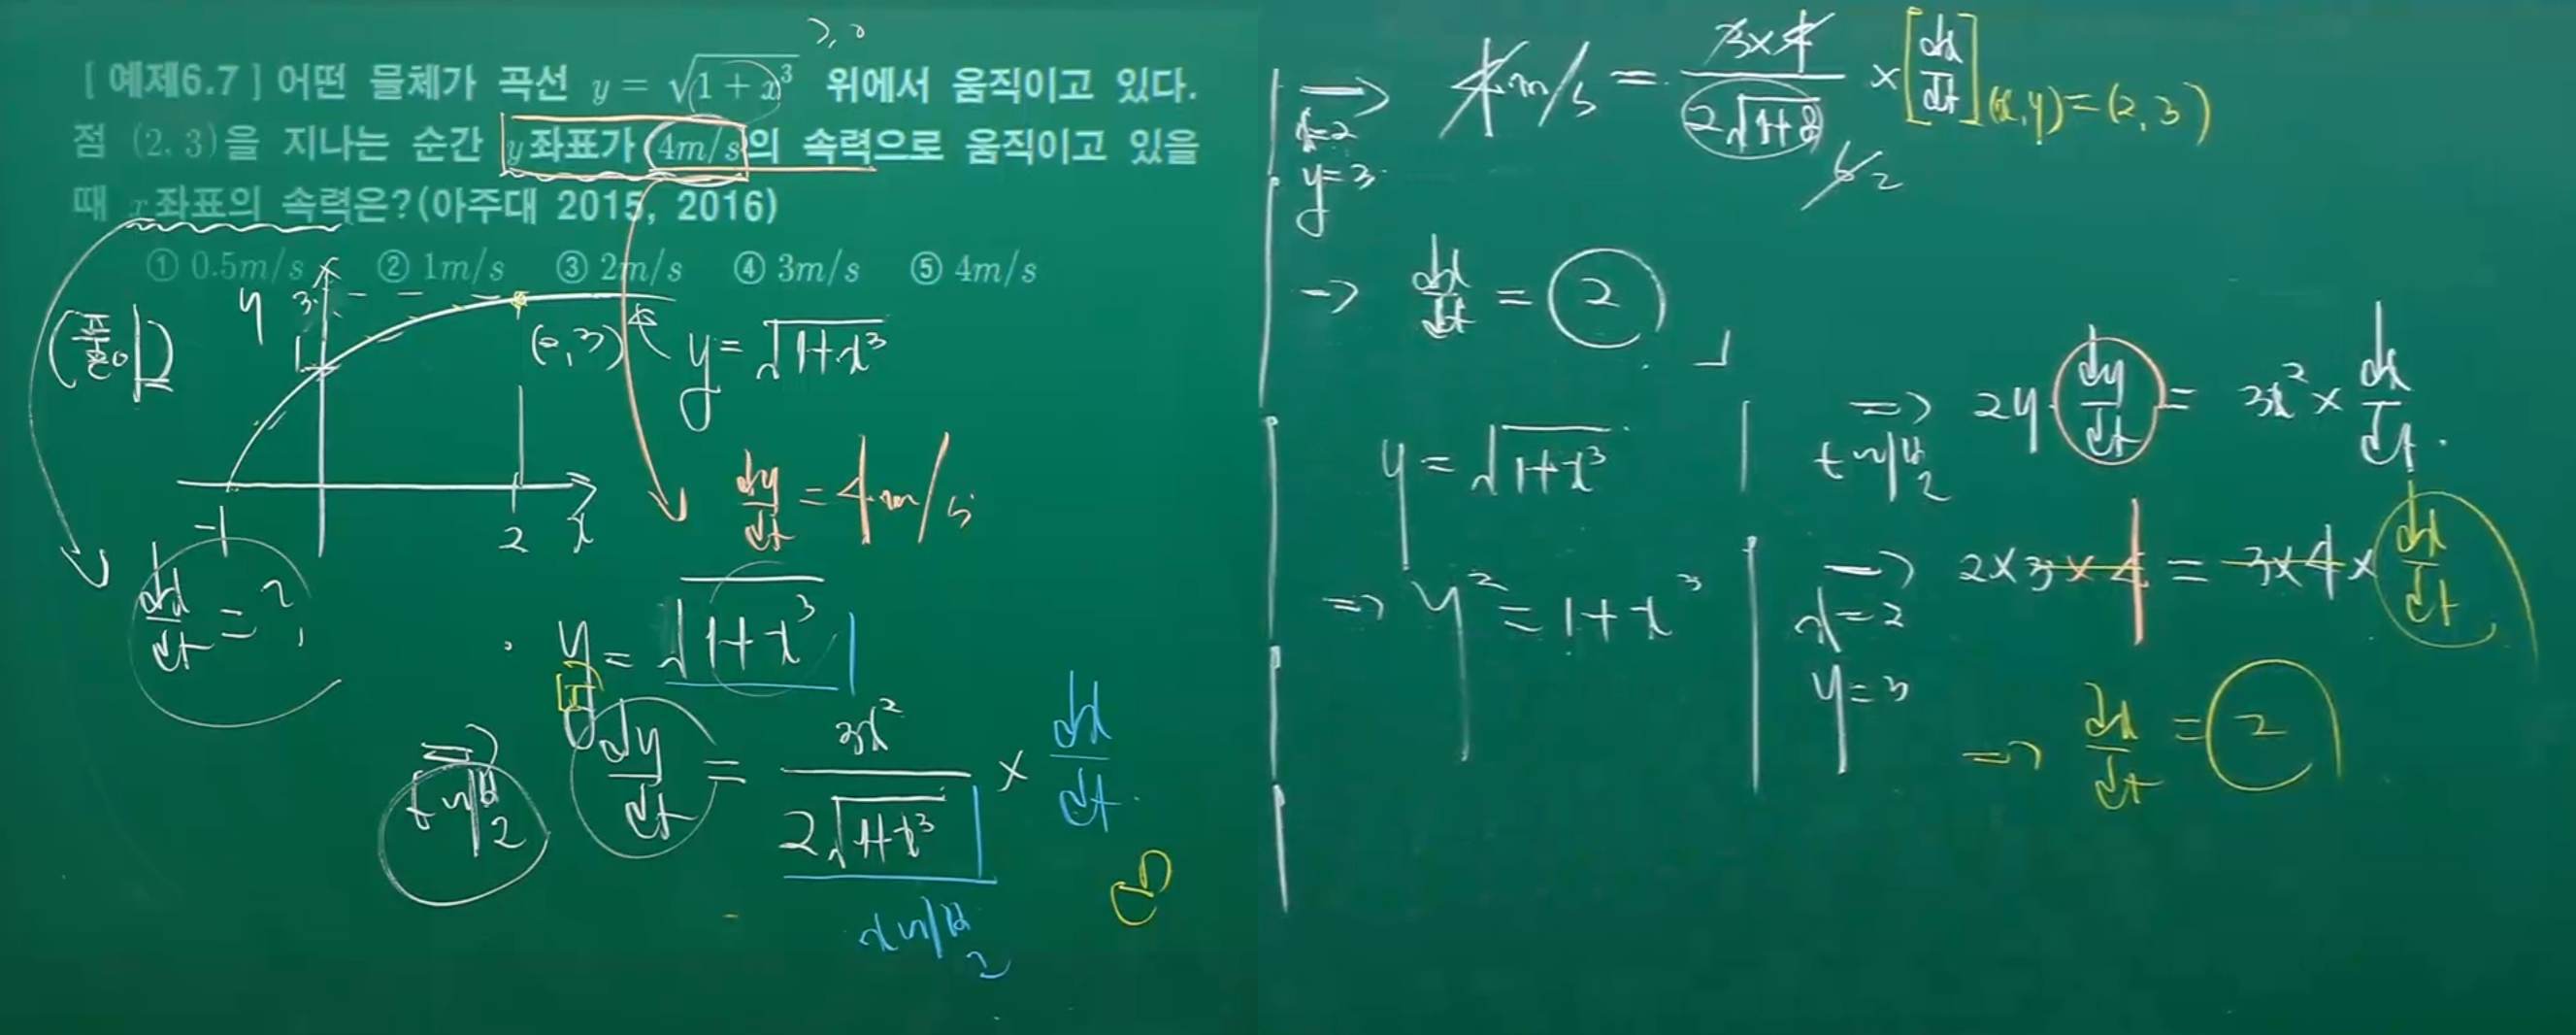 ≥ 0
[예제6.7] 어떤 물체가 곡선 y = √(1 + x³) 위에서 움직이고 있다.
점 (2, 3)을 지나는 순간 y좌표가 4m/s의 속력으로 움직이고 있을
때 x좌표의 속력은?(아주대 2015, 2016)
① 0.5m/s ② 1m/s ③ 2m/s ④ 3m/s ⑤ 4m/s
(풀이)
y
3
1
(2, 3)
-1
2
x
y = √(1+x³)
dy/dt = 4m/s
dx/dt = ?
y = √(1+x³)
⇒
t미분
dy/dt = 3x² / 2√(1+x³) × dx/dt
x미분
→
x=2
y=3
4m/s = 3×4 / 2√(1+8) × [dx/dt](x,y)=(2,3)
6 2
→ dx/dt = 2
y = √(1+x³)
⇒ y² = 1+x³
⇒
t미분
2y dy/dt = 3x² × dx/dt
→
x=2
y=3
2×3×4 = 3×4× dx/dt
⇒ dx/dt = 2